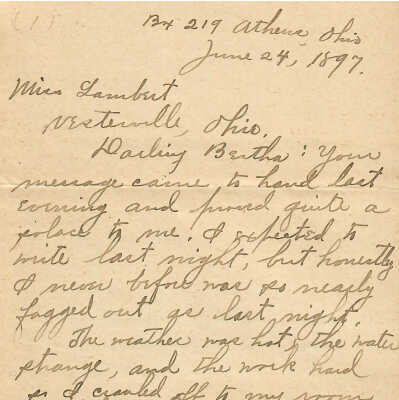 Bx 219 Athens, Ohio
June 24, 1897.
Miss Lambert
Westerville, Ohio.
Darling Bertha: Your
message came to hand last
evening and proved quite a
solace to me. I expected to
write last night, but honestly
I never before was so nearly
fagged out as last night.
The weather was hot, the water
strange, and the work hard
so I crawled off to my room